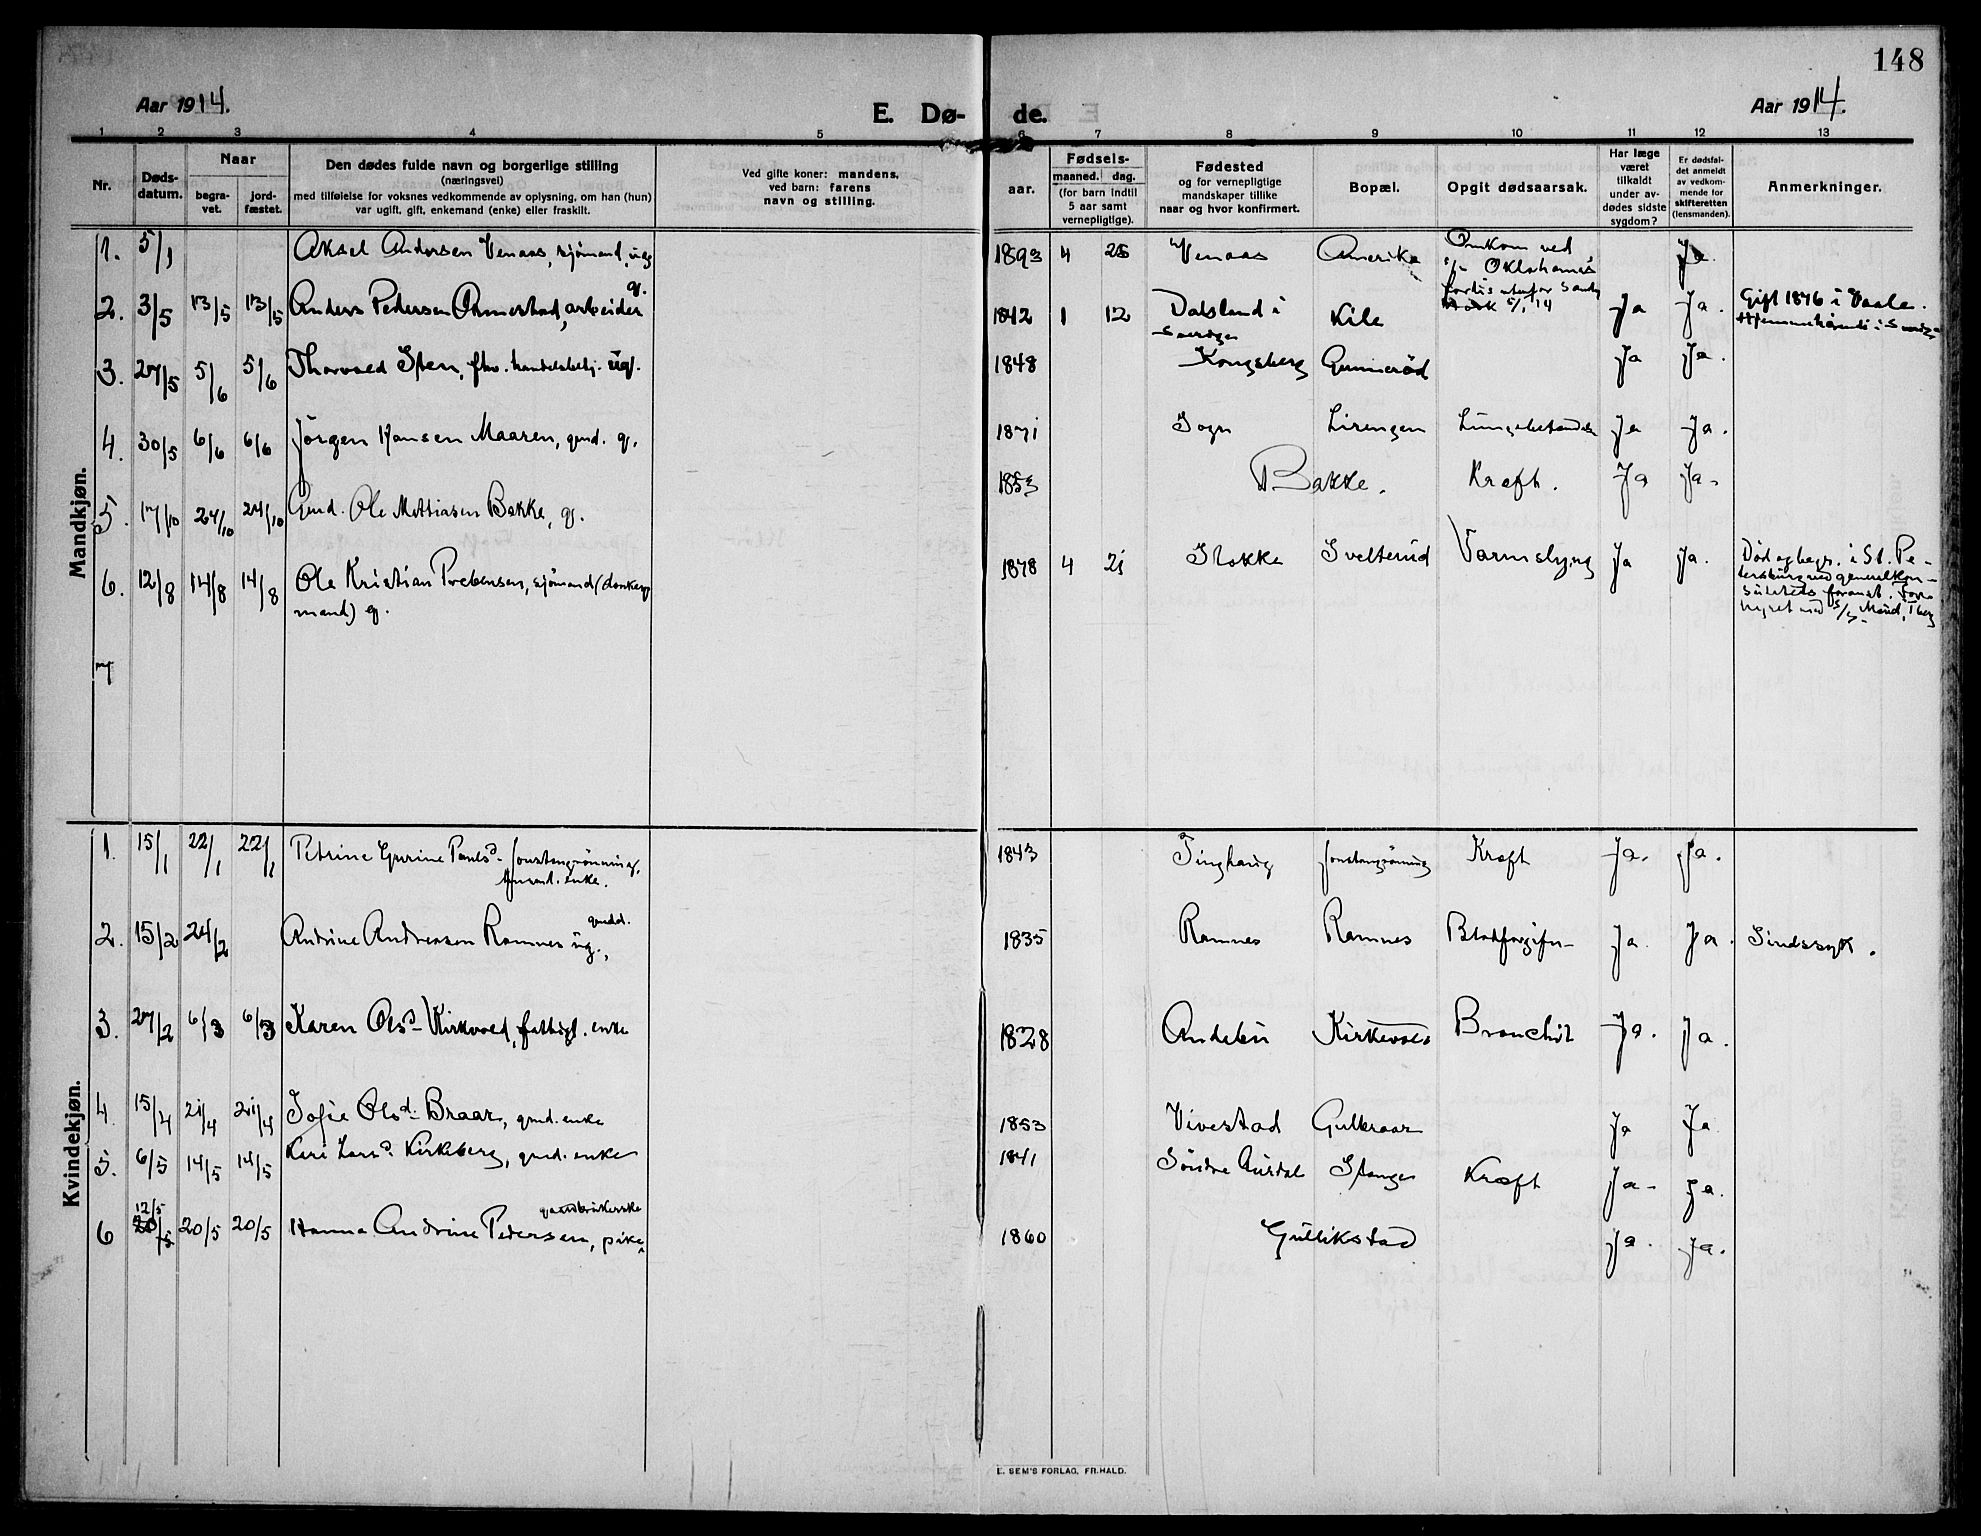 148
Aar 1914.
E. Dø- de.
Aar 1914.
1 2 3 4 5 6 7 8 9 10 11 12 13
Nr.
Døds-
datum.
Naar
begra-
vet.
jord-
fæstet.
Den dødes fulde navn og borgerlige stilling
(næringsvei)
med tilføielse for voksnes vedkommende av oplysning, om han (hun)
var ugift, gift, enkemand (enke) eller fraskilt.
Ved gifte koner: mandens,
ved barn: farens
navn og stilling.
aar.
Fødsels-
maaned. dag.
(for barn indtil
5 aar samt
vernepligtige).
Fødested
og for vernepligtige
mandskaper tillike
naar og hvor konfirmert.
Bopæl.
Opgit dødsaarsak.
Har læge
været
tilkaldt
under av-
dødes sidste
sygdom?
Er dødsfal-
det anmeldt
av vedkom-
mende for
skifteretten
(lensmanden).
Anmerkninger.
Mandkjøn.
1. 5/1 Aksel Andersen Venaas, sjømand, ug. 1893 4 Venaas Amerika Omkom ved
s/s Oklahomas
forlis utenfor Sandy
Hook 5/1 14 Ja.
2. 3/5 13/5 13/5 Anders Pedersen Ormestad, arbeider g. 1842 1 12 Dalsland i
Sverige Kile Ja Ja. Gift 1876 i Vaale.
Hjemmehørende i Sverige
3. 27/5 5/6 5/6 Thorvald Sten, fhv. handelsbetj. ug. 1848 Kongsberg Gunnerød Ja Ja.
4. 30/5 6/6 6/6 Jørgen Hansen Maaren, gmd. g. 1871 Sogn Lirengen Ja Ja.
5. 17/10 24/10 24/10 Gmd. Ole Mathiasen Bakke, g. 1853 Bakke. Kræft. Ja Ja.
6. 12/8 14/8 14/8 Ole Kristian Prebensen, sjømand (donkey-
mand) g. 1878 4 21 Stokke Svelterud Varmslyng Ja Ja. Død og begr. i St. Pe-
tersburg ved generalkon-
sulatets foranst. For-
hyret med s/s Maud, Tbg
7
Kvindekjøn.
1. 15/1 22/1 22/1 Petrine Gurine Paulsd. Fonstangrønning,
husmd. enke. 1843 Tinghaug Fonstangrønning Kræft Ja. Ja.
2. 15/2 24/2 Andrine Andreasen Ramnes ug., gmdd. 1835 Ramnes Ramnes Blodforgiftn. Ja Ja. Sindssyk.
3. 27/2 6/3 6/3 Karen Olsd. Kirkevold, fattigl. enke 1828 Andebu Kirkevold Bronchit Ja. Ja.
4. 15/4 21/4 21/4 Sofie Olsd. Braar, gmd. enke 1853 Vivestad Gulbraar Ja Ja
5. 6/5 14/5 14/5 Kari Larsd. Kirkeberg, gmd. enke 1841 Søndre Aurdal Stange Kræft Ja. Ja.
6 12/5 20/5 20/5 Hanna Andrine Pedersen, pike, gaardbrukerske 1860 Gullikstad Ja. Ja.
E. SEM'S FORLAG, FR.HALD.